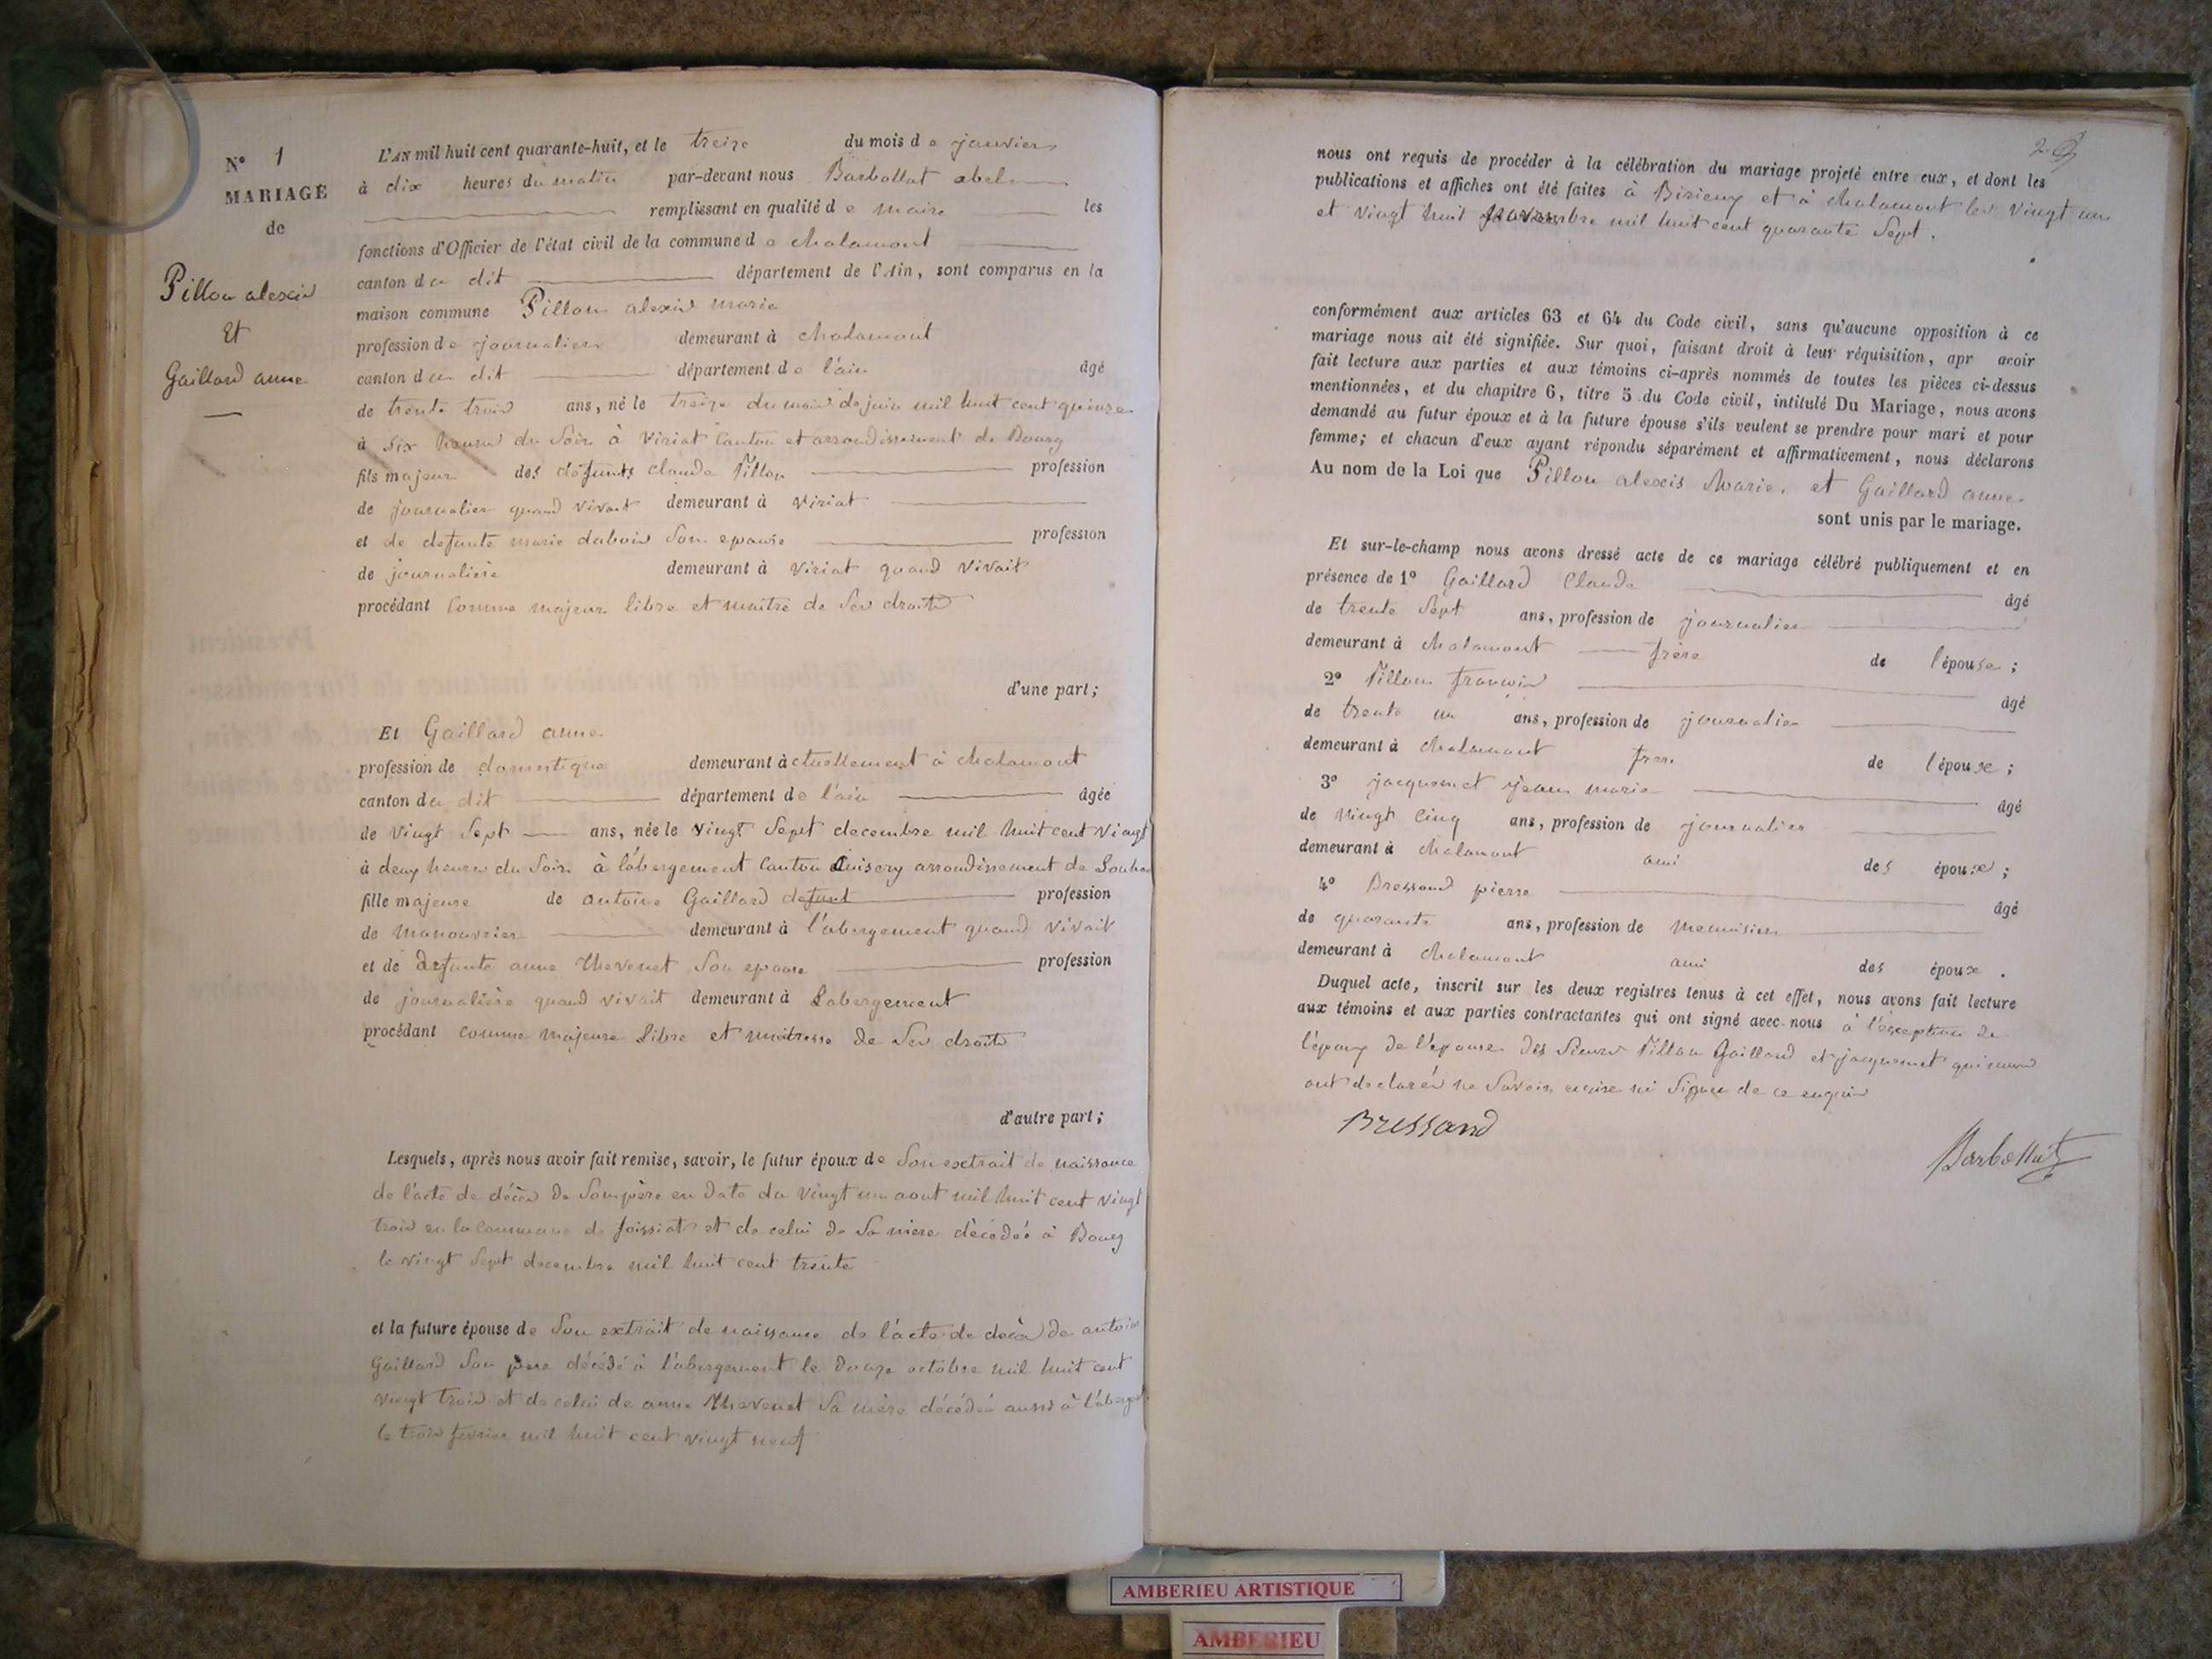 N° 1
MARIAGE
de
Pillon alexis
Et
Gaillard anne
L'AN mil huit cent quarante-huit, et le treize du mois de janvier
à dix heures du matin par-devant nous Barbollat abel
remplissant en qualité de maire les
fonctions d'Officier de l'état civil de la commune de chalamont
canton du dit département de l'Ain, sont comparus en la
maison commune Pillon alexis marie
profession de journalier demeurant à chalamont
canton du dit département de l'ain âgé
de trente trois ans, né le treize du mois de juin mil huit cent quinze
à six heures du Soir à Viriat Canton et arrondissement de Bourg
fils majeur des défunts claude Pillon profession
de journalier quand vivait demeurant à Viriat
et de defunte marie dubois Son epouse profession
de journalière demeurant à Viriat quand Vivait
procédant Comme majeur libre et maitre de Ses droits
d'une part;
Et Gaillard anne
profession de domestique demeurant àctuellement à chalamont
canton du dit département de l'ain âgée
de Vingt Sept ans, née le vingt Sept decembre mil huit cent Vingt
à deux heures du Soir à l'abergement Canton Cuisery arrondissement de
fille majeure de antoine Gaillard defunt profession
de manouvrier demeurant à l'abergement quand Vivait
et de defunte anne thevenet Son epouse profession
de journalière quand vivait demeurant à Labergement
procédant comme majeure Libre et maitresse de Ses droits
d'autre part;
Lesquels, après nous avoir fait remise, savoir, le futur époux de Son extrait de naissance
de l'acte de décès de Son père en date du Vingt un aout mil huit cent Vingt
trois en la Commune de foissiat et de celui de Sa mere décédée à Bourg
le vingt Sept decembre mil huit cent trente
et la future épouse de Son extrait de naissance de l'acte de decès de antoine
Gaillard Son père décédé à l'abergement le douze octobre mil huit cent
vingt trois et de celui de anne thevenet Sa mère décédée aussi à
le trois fevrier mil huit cent vingt neuf
2
nous ont requis de procéder à la célébration du mariage projeté entre eux, et dont les
publications et affiches ont été faites à Birieux et à chalamont les Vingt un
et Vingt huit novembre mil huit cent quarante Sept.
conformément aux articles 63 et 64 du Code civil, sans qu'aucune opposition à ce
mariage nous ait été signifiée. Sur quoi, faisant droit à leur réquisition, apr avoir
fait lecture aux parties et aux témoins ci-après nommés de toutes les pièces ci-dessus
mentionnées, et du chapitre 6, titre 5 du Code civil, intitulé Du Mariage, nous avons
demandé au futur époux et à la future épouse s'ils veulent se prendre pour mari et pour
femme; et chacun d'eux ayant répondu séparément et affirmativement, nous déclarons
Au nom de la Loi que Pillon alexis Marie, et Gaillard anne
sont unis par le mariage.
Et sur-le-champ nous avons dressé acte de ce mariage célébré publiquement et en
présence de 1° Gaillard Claude âgé
de trente Sept ans, profession de journalier
demeurant à chalamont frère de l'épouse;
2° Pillon francois âgé
de trente un ans, profession de journalier
demeurant à chalamont frere de l'époux;
3° jacquemet jean marie âgé
de Vingt Cinq ans, profession de journalier
demeurant à chalamont ami des époux;
4° Bressand pierre âgé
de quarante ans, profession de menuisier
demeurant à chalamont ami des époux.
Duquel acte, inscrit sur les deux registres tenus à cet effet, nous avons fait lecture
aux témoins et aux parties contractantes qui ont signé avec nous à l'exception de
l'époux de l'epouse des Sieurs Pillon Gaillard et jacquemet
ont declarés ne Savoir ecrire ni Signer de ce enquis
Bressand
Barbollat
AMBERIEU ARTISTIQUE
AMBERIEU